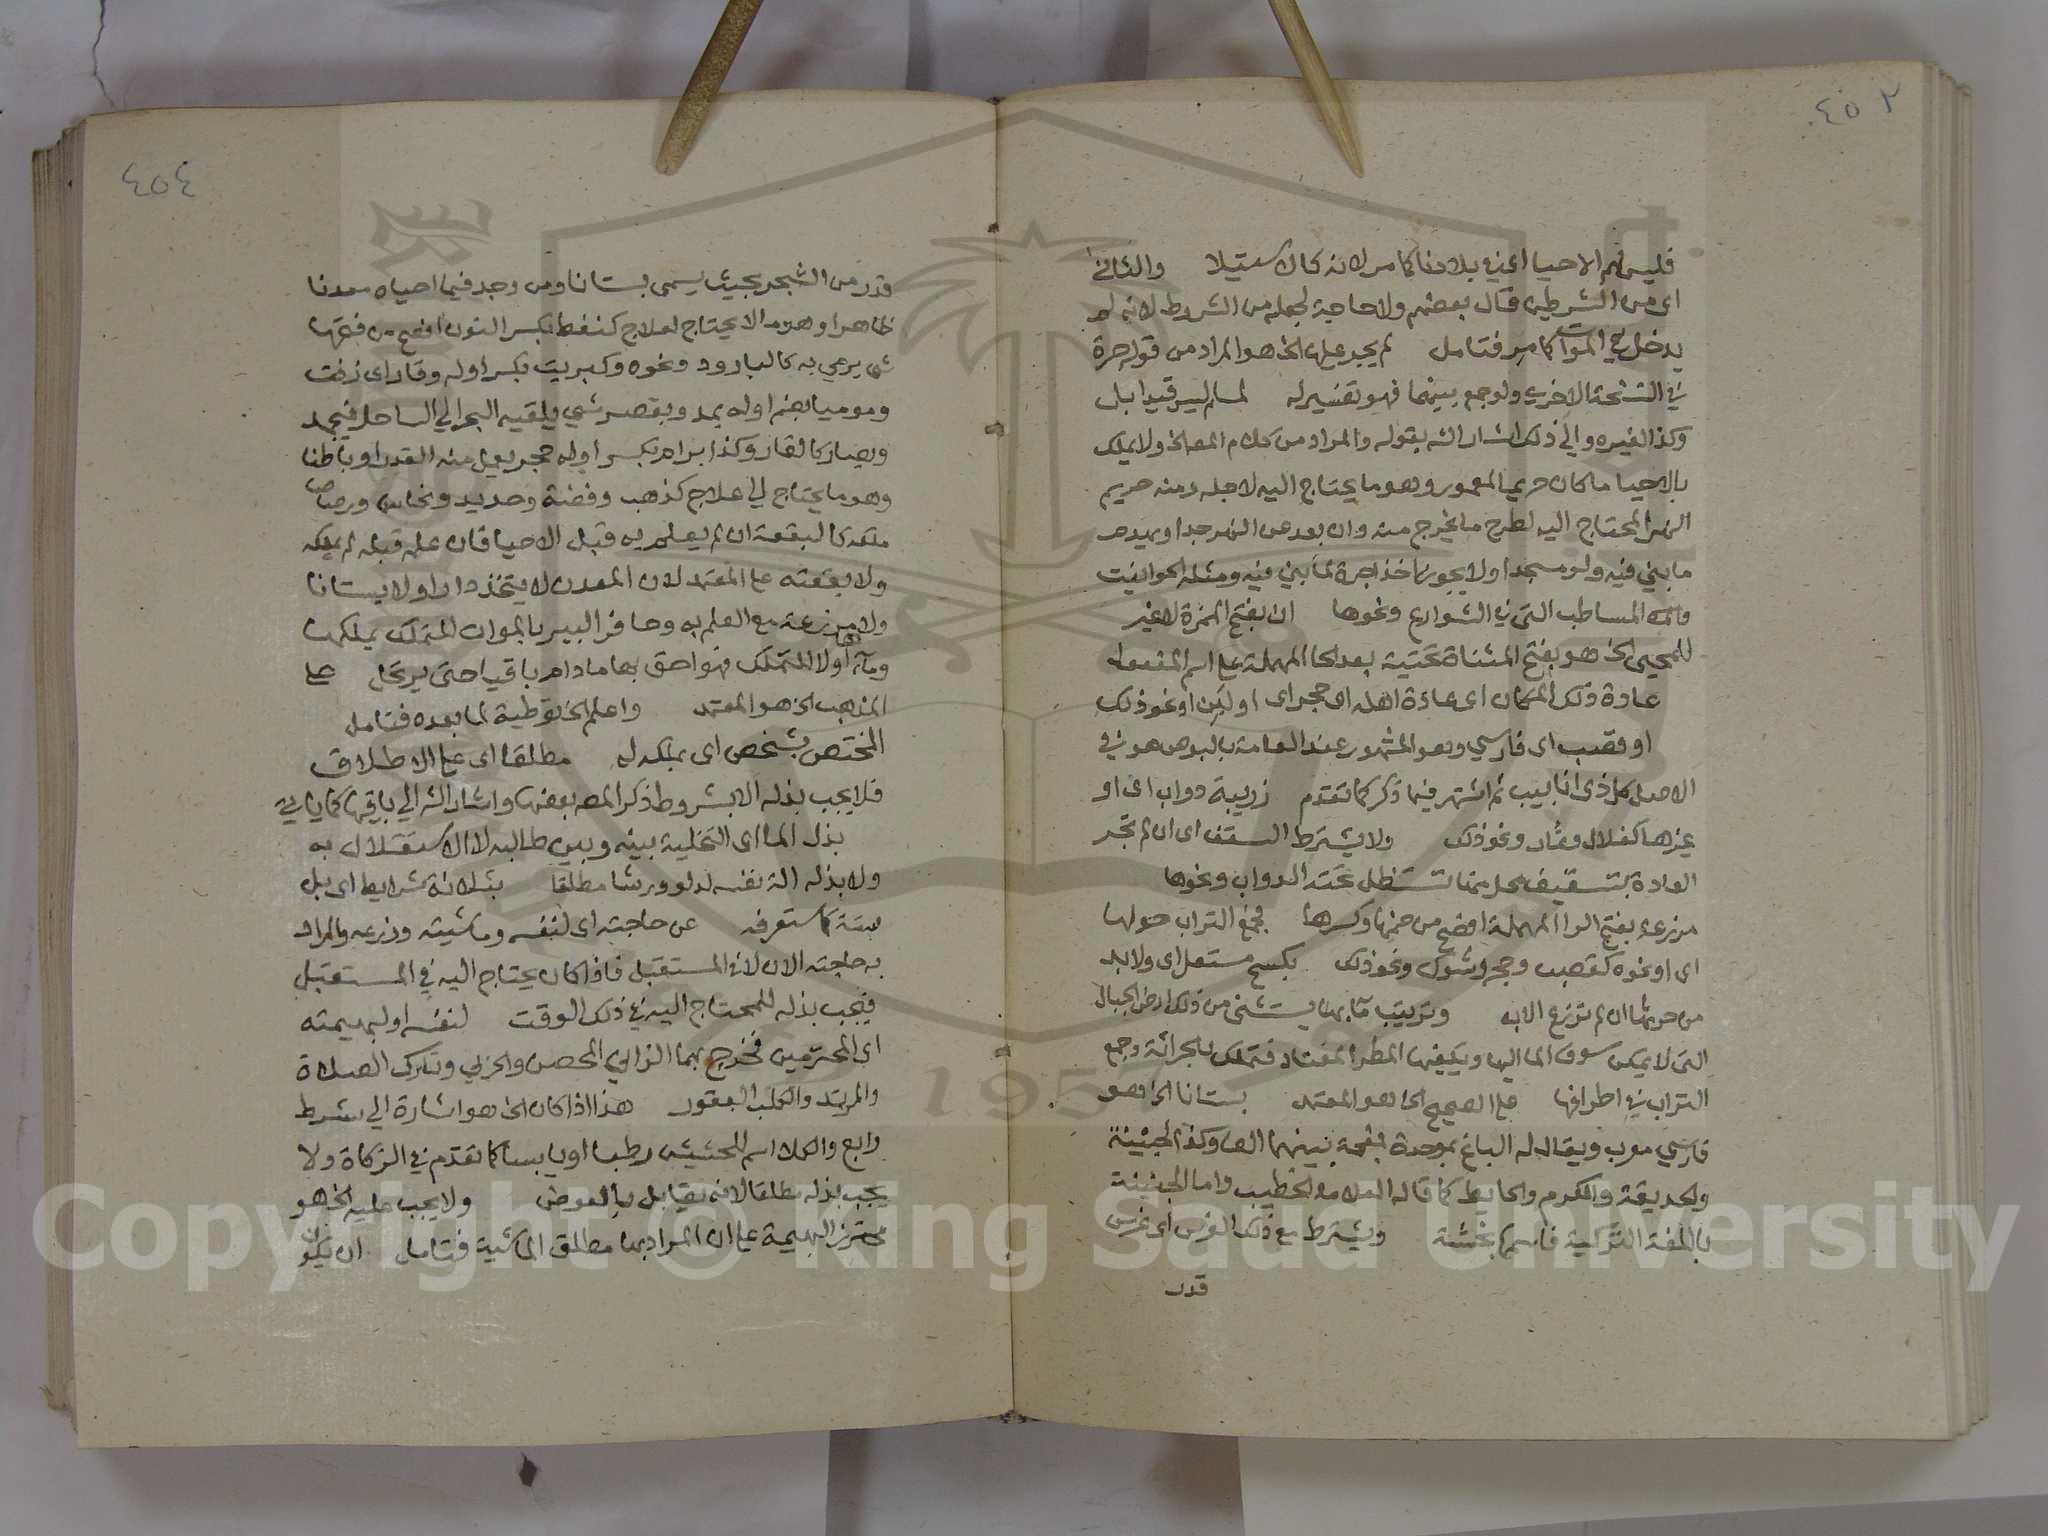 ٤٥٣
فليس لهم الاحيا اى في بلادنا كما مر لانه كالاستيلا والثاني
اى من الشرطين قال بعضهم ولا حاجة لجعله من الشروط لانه لم
يدخل في الموات كما مر فتامل لم يجر عليها الخ هو المراد من قوله حرة
في النسخة الاخرى ولو جمع بينهما فهو تفسير له لمسلم ليس قيدا بل
وكذا لغيره والى ذلك اشار الش بقوله والمراد من كلام المص الخ ولا يملك
بالاحيا ما كان حريما لمعمور وهو ما يحتاج اليه لاجله ومنه حريم
النهر المحتاج اليه لطرح ما يخرج منه وان بعد عن النهر جدا ويهدم
ما بني فيه ولو مسجدا ولا يجوز اخذ اجرة لما بني فيه ومثله الحوانيت
والمساطب التي في الشوارع ونحوها ان بفتح الهمزة لا غير
للمحيى الخ هو بفتح المثناة تحتية بعد الحا المهملة على اسم المفعول
عادة ذلك المكان اى عادة اهله اى حجر اى او لبن او نحو ذلك
او قصب اى فارسي وهو المشهور عند العامة بالبوص هو في
الاصل كل ذى انابيب ثم اشتهر فيما ذكر كما تقدم زريبة دواب اى او
غيرها كغلال وثمار ونحو ذلك ولا يشترط السقف اى ان لم تجر
العادة بتسقيف محل منها تستظل تحته الدواب ونحوها
مزرعة بفتح الرا المهملة افصح من ضمها وكسرها فجمع التراب حولها
اى او نحوه كقصب وحجر وشوك ونحو ذلك بكسح مستعل اى ولا بد
من حرثها ان لم تزرع الا به وترتيب ما بها يستثنى من ذلك ارض الجبال
التي لا يمكن سوق الما اليها ويكفيها المطر المعتاد فتملك بالحراثة وجمع
التراب في اطرافها على الصحيح الخ هو المعتمد بستانا الخ هو
فارسي معرب ويقال له الباغ بموحدة فمعجمة بينهما الف وكذا الجنينة
والحديقة والكرم والحايط كما قاله العلامة الخطيب واما الجنينة
باللغة التركية فاسمها بخشة ويشترط مع ذلك الغرس اى غرس
قدر
٤٥٤
قدر من الشجر بحيث يسمى بستانا ومن وجد فيما احياه معدنا
ظاهرا وهو ما لا يحتاج لعلاج كنفط بكسر النون افصح من فتحها
شى يرمي به كالبارود ونحوه وكبريت بكسر اوله وقار اى زفت
وموميا بضم اوله يمد ويقصر شي يلقيه البحر الي الساحل فيجمد
ويصار كالقار وكذا برام بكسر اوله حجر يعمل منه القدر او باطنا
وهو ما يحتاج الي علاج كذهب وفضة وحديد ونحاس ورصاص
ملكه كالبقعة ان لم يعلم به قبل الاحيا فان علمه قبله لم يملكه
ولا بقعته على المعتمد لان المعدن لا يتخذ دارا ولا بستانا
ولا مزرعة مع العلم به وحافر البير بالموات للتملك يملكها
وماءها او لا للتملك فهو احق بها ما دام باقيا حتى يرتحل على
المذهب الخ هو المعتمد واعلم الخ توطية لما بعده فتامل
المختص بشخص اى بملكه له مطلقا اى على الاطلاق
فلا يجب بذله الا بشروط ذكر المص بعضها واشار الش الي باقيها كما ياتي
بذل الما اى التخلية بينه وبين طالبه لا الاستقلال به
ولا بذله الة نفسه لدلو ورشا مطلقا بثلاثة شرايط اى بل
ستة كما ستعرفه عن حاجته اى لنفسه وماشيته وزرعه والمراد
به حاجته الان لا في المستقبل فاذا كان يحتاج اليه في المستقبل
فيجب بذله للمحتاج اليه في ذلك الوقت لنفسه او لبهيمته
اى المحترمين فخرج بهما الزاني المحصن والحربي وتارك الصلاة
والمرتد والكلب العقور هذا اذا كان الخ هو اشارة الي شرط
رابع والكلا اسم للحشيش رطبا او يابسا كما تقدم في الزكاة ولا
يجب بذله مطلقا لانه يقابل بالعوض ولا يجب عليه الخ هو
محترز البهيمة على ان المراد بها مطلق الماشية فتامل ان تكون
Copyright © King Saud University
1957